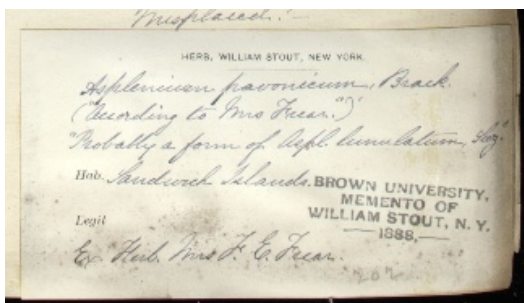 "Misplaced."—
HERB, WILLIAM STOUT, NEW YORK.
Asplenium pavonicum, Brack.
("According to Mrs Frear.")
"Probably a form of Aspl. lunulatum,
Hab. Sandwich Islands.
BROWN UNIVERSITY,
MEMENTO OF
WILLIAM STOUT, N. Y.
—1888,—
Legit
Ex Herb. Mrs F. E. Frear.
202